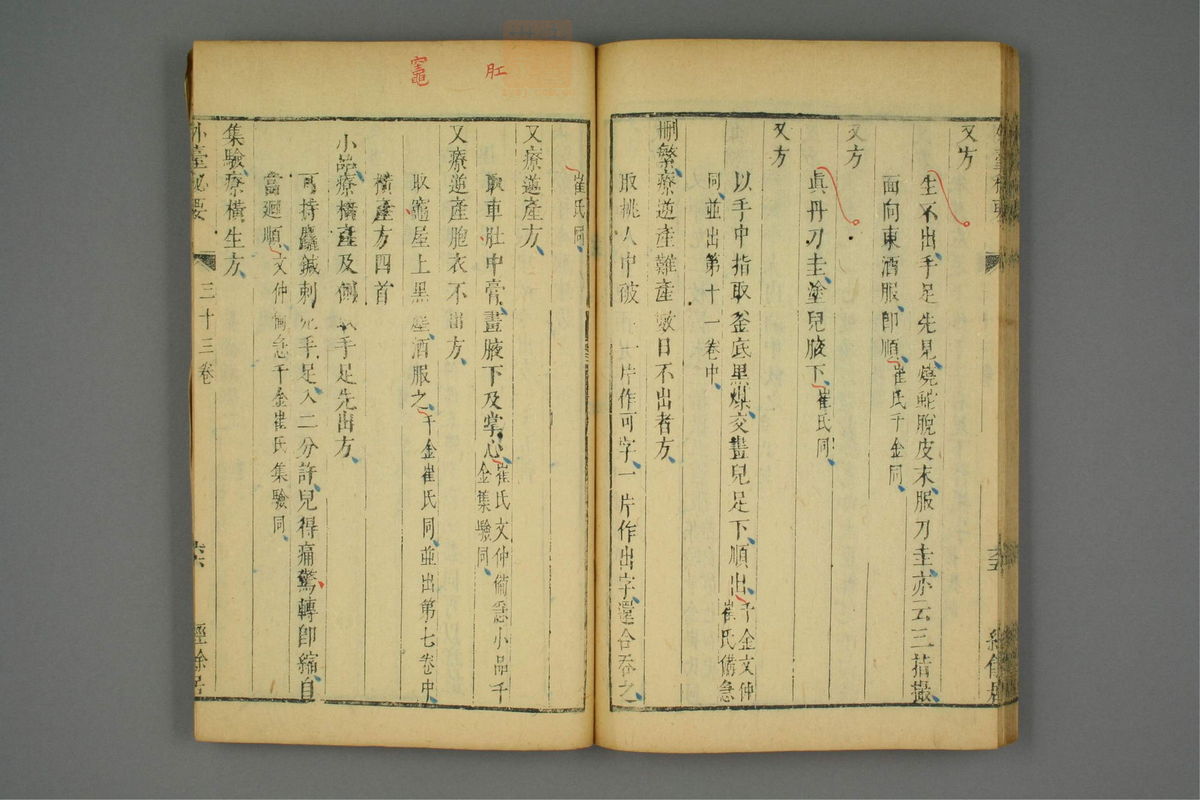 又方
生不出手足先見燒蛇脫皮末服刀圭亦云三指撮
面向東酒服即順崔氏千金同
又方
眞丹刀圭塗兒腋下崔氏同
又方
以手中指取釜底黑煤交畫兒足下順出千金文仲崔氏備急
同並出第十一卷中
刪繁療逆產難產數日不出者方
取桃人中破一片作可字一片作出字還合吞之
崔氏同
又療逆產方
取車肚中膏畫腋下及掌心崔氏文仲備急小品千金集驗同
又療逆產胞衣不出方
取竈屋上黑塵酒服之千金崔氏同並出第七卷中
橫產方四首
小品療橫產及側手足先出方
可持麤鍼刺兒手足入二分許兒得痛驚轉即縮自
當廻順文仲備急千金崔氏集驗同
集驗療橫生方
外臺秘要 三十三卷 六六 經餘居
肛
竈